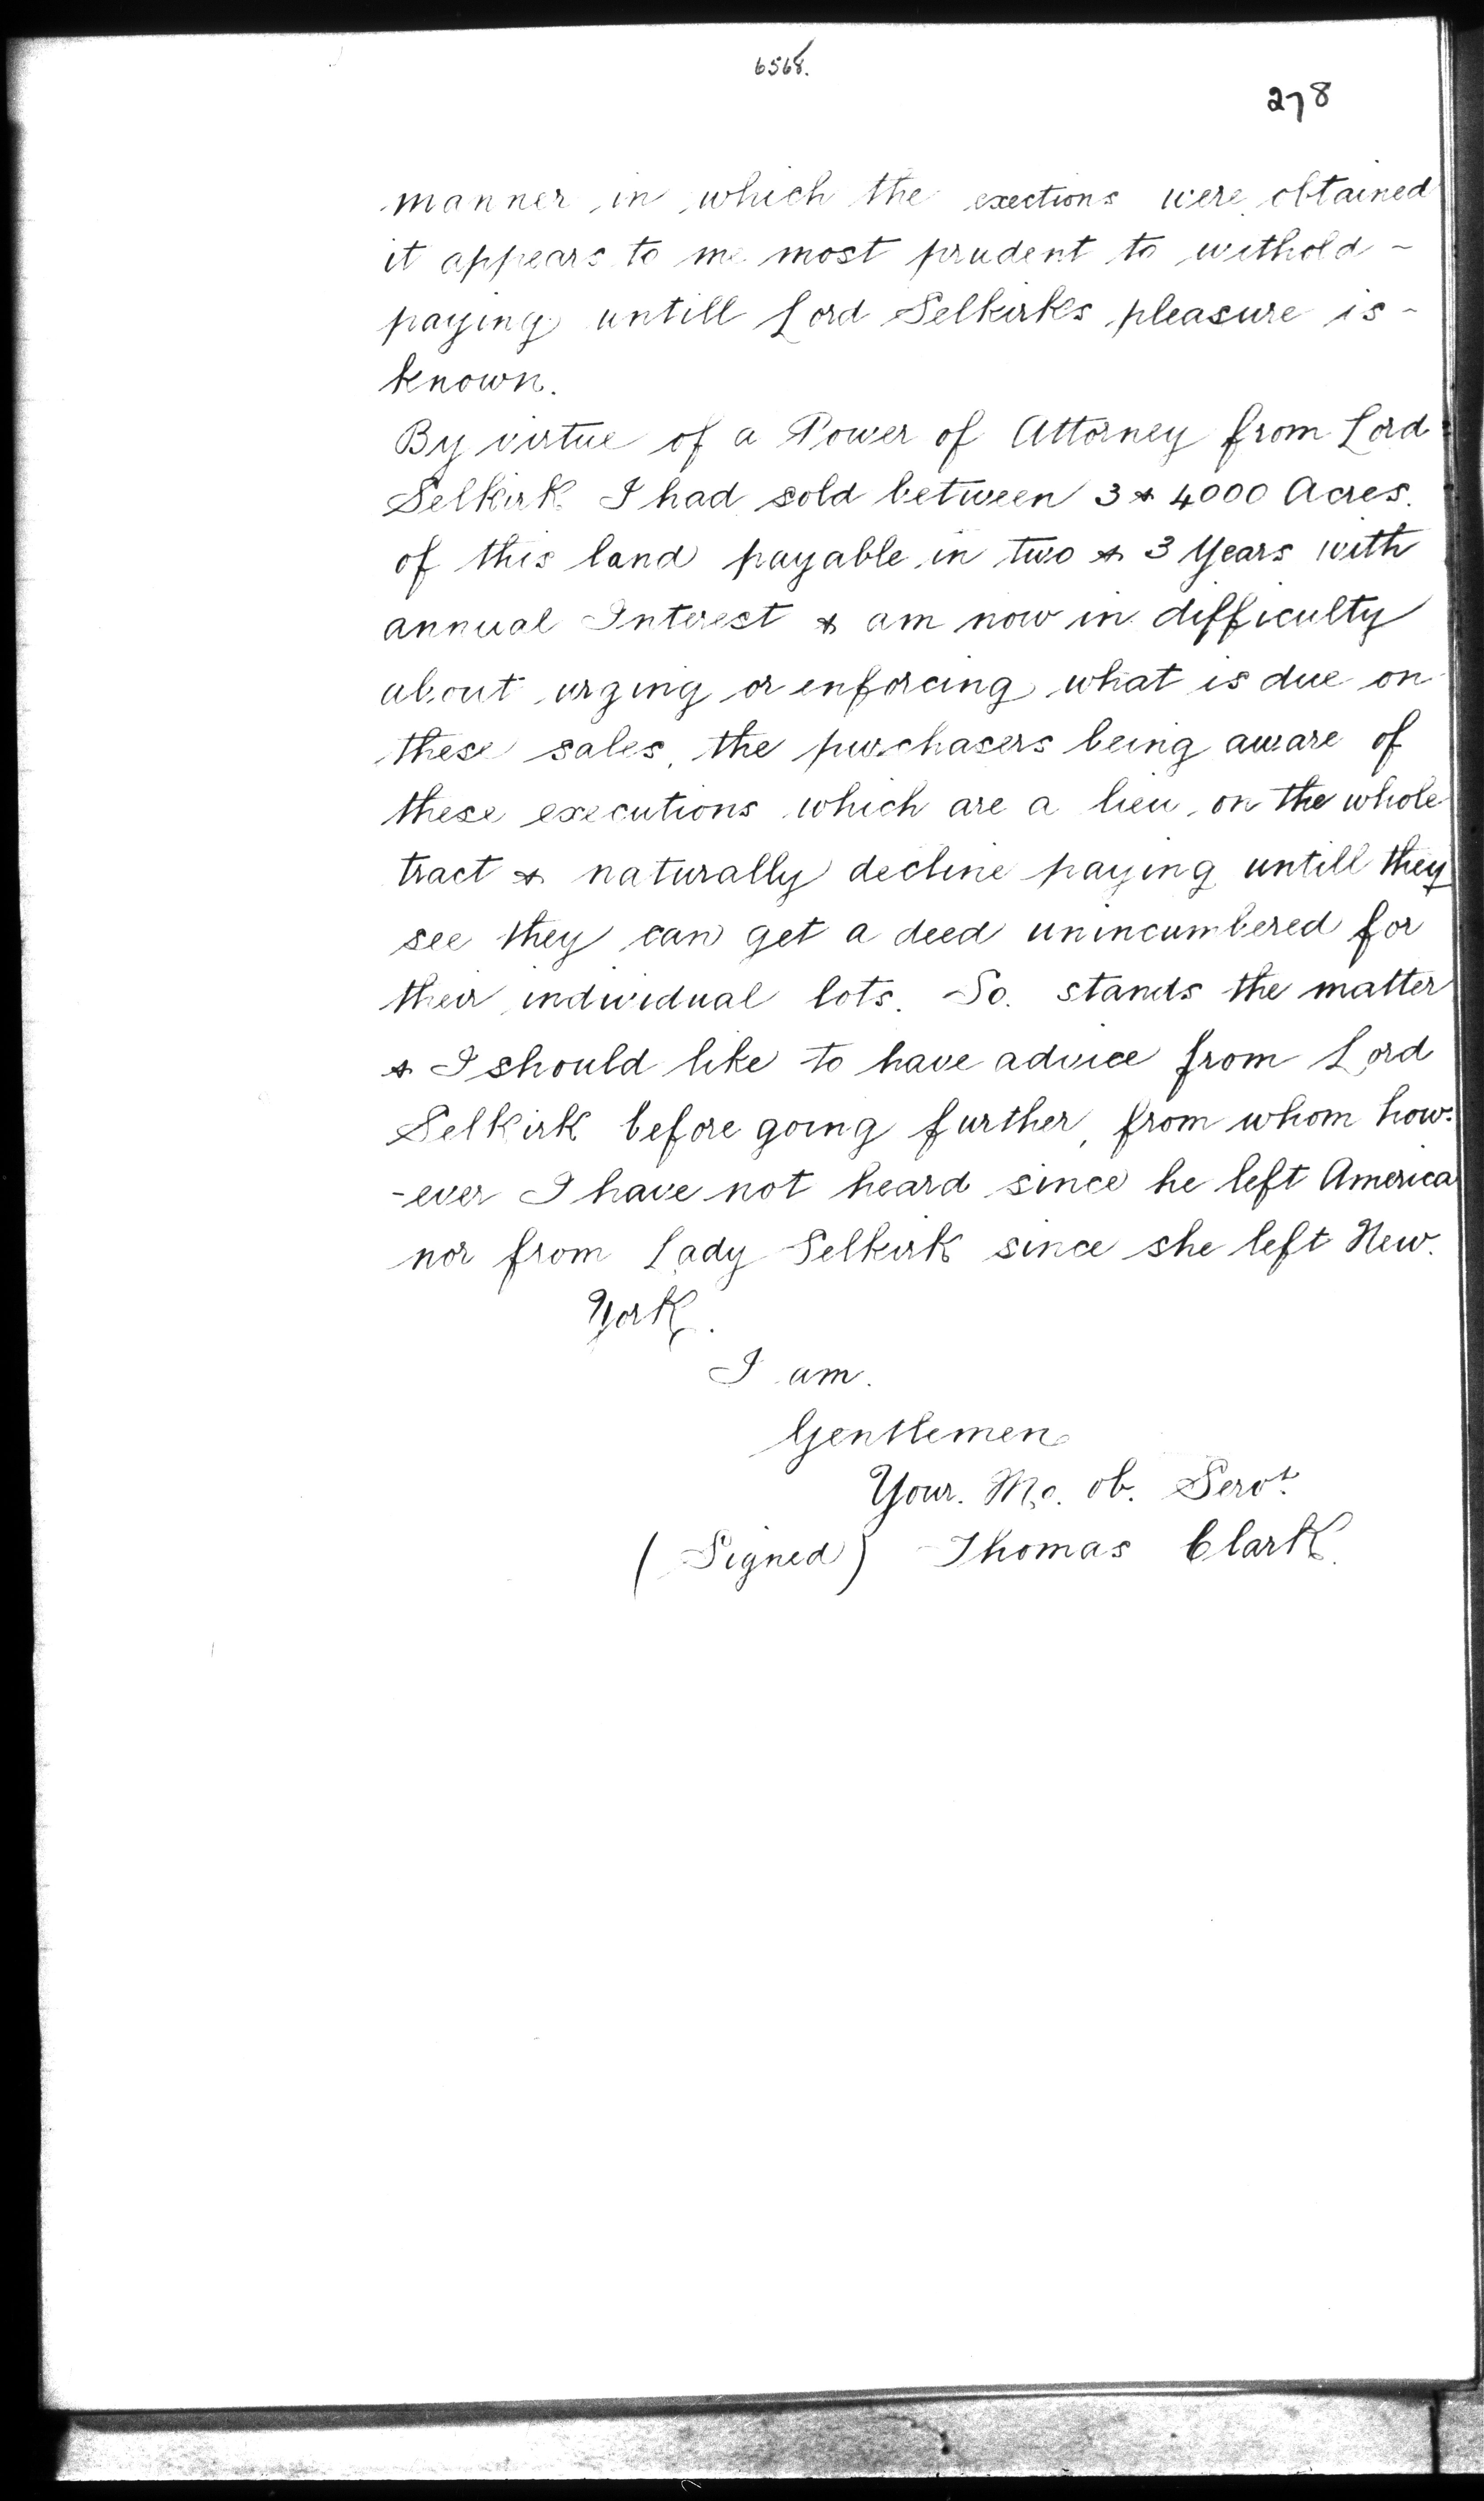 6568.
278
manner in which the exections were obtained
it appears to me most prudent to withold -
paying untill Lord Selkirks pleasure is -
known.
By virtue of a Power of Attorney from Lord
Selkirk I had sold between 3 & 4000 Acres.
of this land payable in two & 3 Years with
annual Interest & am now in difficulty
about urging or enforcing what is due on
these sales, the purchasers being aware of
these executions which are a lien, on the whole
tract & naturally decline paying untill they
see they can get a deed unincumbered for
their individual lots. So. stands the matter
& I should like to have advice from Lord
Selkirk before going further, from whom how-
-ever I have not heard since he left America
nor from Lady Selkirk since she left New.
York.
I am.
Gentlemen
Your. Mo. ob. Servt.
(Signed) Thomas Clark.